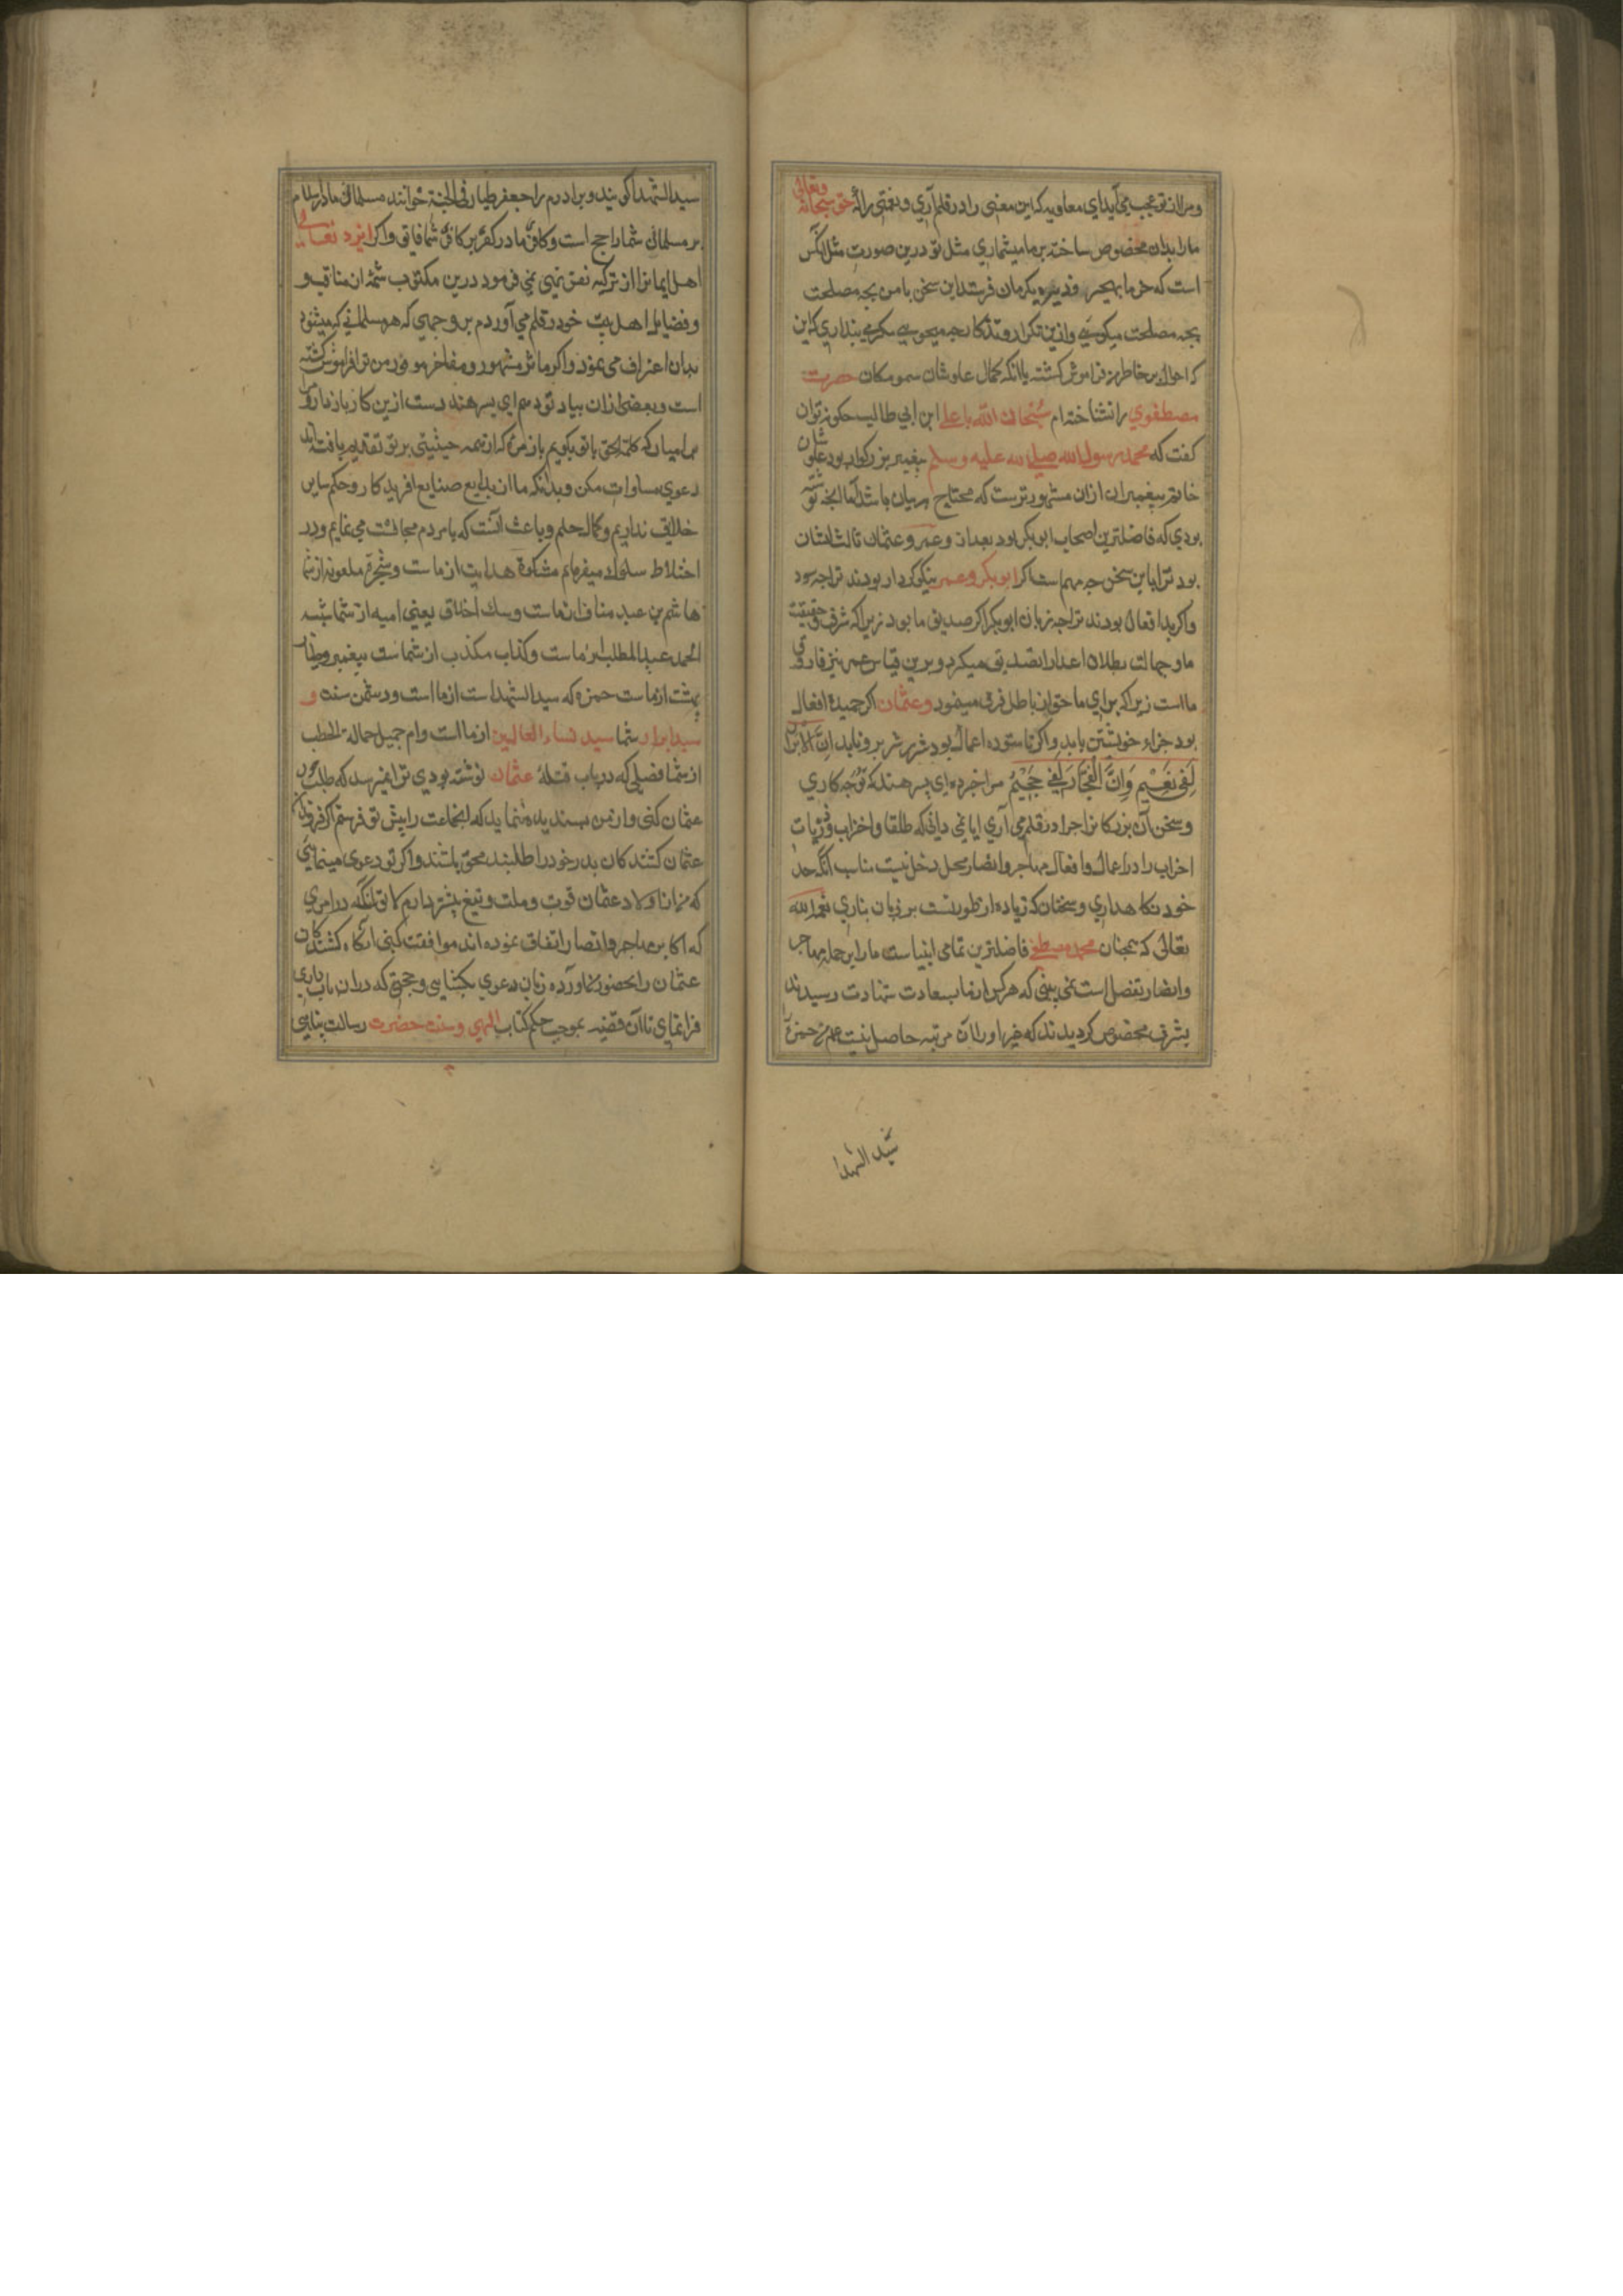 ومرا از تو عجب می‌آید ای معاویه که این معنی را در قلم آری و نعمتی را که حق سبحانه وتعالی
مارا بدان مخصوص ساخته بر ما میشماری مثل تو درین صورت مثل آنکس
است که خرما بهجر و زیره بکرمان فرستد این سخن با من بچه مصلحت
بچه مصلحت میکویی وازین تکرار وتذکار چه میجویی مکر می پنداری که این
که احوال بر خاطر من فراموش کشته یا انکه کمال علو شان سمو مکان حضرت
مصطفوی را نشناخته ام سُبحان الله یا علی ابن ابی طالب چکونه توان
کفت که محمد رسول الله صلی الله علیه وسلم پیغمبر بزرکوار بود علو شان
خاتم پیغمبران ازان مشهورترست که محتاج بیان باشد اما انچه نوشته
بودی که فاضلترین اصحاب ابوبکر بود بعد از و عمر و عثمان ثالث ایشان
بود ترا باین سخن چه مهم است اکر ابوبکر وعمر نیکو کردار بودند ترا چه سود
واکر بد افعال بودند ترا چه زیان ابوبکر اکر صدیق ما بود زیرا که شرف حقیقت
ما و جهالت بطلان اعدا را تصدیق میکرد و برین قیاس عمر نیز فاروق
ما است زیرا که برای ما حق از باطل فرق مینمود وعثمان اکر حمیده افعال
بود جزاء خویشتن یابد و اکر نا ستوده اعمال بود شرر شر برو نیاید اِنّ الابرار
لَفِی نَعِیْم وَاِنَّ الْفُجَّارَ لَفِی جَحِیْمٍ مرا خبر ده ای پسر هند که تو چه کاری
وسخن آن بزرکان را چرا در قلم می آری ایا نمی دانی که طلقا واحزاب و ذریات
احزاب را در اعمال وافعال مهاجر وانصار مجل دخل نیست مناسب انکه حد
خود نکاه داری و سخنان که زیاده از طور تست بر زبان نیاری نعم الله
تعالی که همچنان محمد مصطفی فاضلترین تمامی انبیاست مارا بر جمله مهاجر
وانصار تفضل است نمی بینی که هر کس از ما بسعادت شهادت رسیدند
بشرفی مخصوص کردیدند که غیر او را آن مرتبه حاصل نیست عم من حمزه را
سید الشهدا
سید الشهدا کویند وبرادرم را جعفر طیار فی الجنة خوانند مسلمان ما در اسلام
بر مسلمان شما راجح است وکافر ما در کفر بر کافر شما فایق واکر ایزد تعالی
اهل ایمانرا از تزکیه نفس نهی نمی فرمود درین مکتوب شمه از مناقب و
و فضایل اهل بیت خود در قلم می آوردم بر وجهی که هر مسلمانی که میشنود
بدان اعتراف می نمود واکر ماثر مشهور و مفاخر موفور من ترا فراموش کشته
است وبعضی ازان بیاد تو دهم ای پسر هند دست ازین کار باز دار ومرا
بدان میار که کلمة الحق با تو بکویم باز من که از همه حیثیتی بر تو تقدیم یافته اند
دعوی مساوات مکن وبدانکه ما از بدایع صنایع افریدکار و حکم سایر
خلایق نداریم وکمال حلم وباعث آنست که با مردم مجالست می نمایم ودر
اختلاط سلوک میفرمایم مشکوة هدایت از ماست وشجره ملعونه از شما
هاشم بن عبد مناف از ماست وسک اخلاق یعنی امیه از شما شیبه
الحمد عبد المطلب از ماست وکذاب مکذب از شماست پیغمبر وطیار
بهشت از ماست حمزه که سید الشهداست از ما است ودشمن سنت و
سید ابرار شما سید نساء العالمین از ما است وام جمیل حمالة الحطب
از شما فصلی که در باب قتلهٔ عثمان نوشته بودی ترا نمیرسد که طلب خون
عثمان کنی واز من پسندیده ننماید که انجماعت را پیش تو فرستم اکر فرزندان
عثمان کشندکان پدر خود را طلبند محق باشند واکر تو دعوی مینمایی
که من از اولاد عثمان قوت وملت و تیغ بیشتر دارم لایق انکه در امری
که اکابر مهاجر وانصار اتفاق نموده اند موافقت کنی آنکاه کشندکان
عثمان را بحضور من آورده زبان دعوی بکشایی وحجتی که دران باب داری
فرا نمای تا آن قضیه بموجب حکم کتاب الهی وسنت حضرت رسالت پناهی